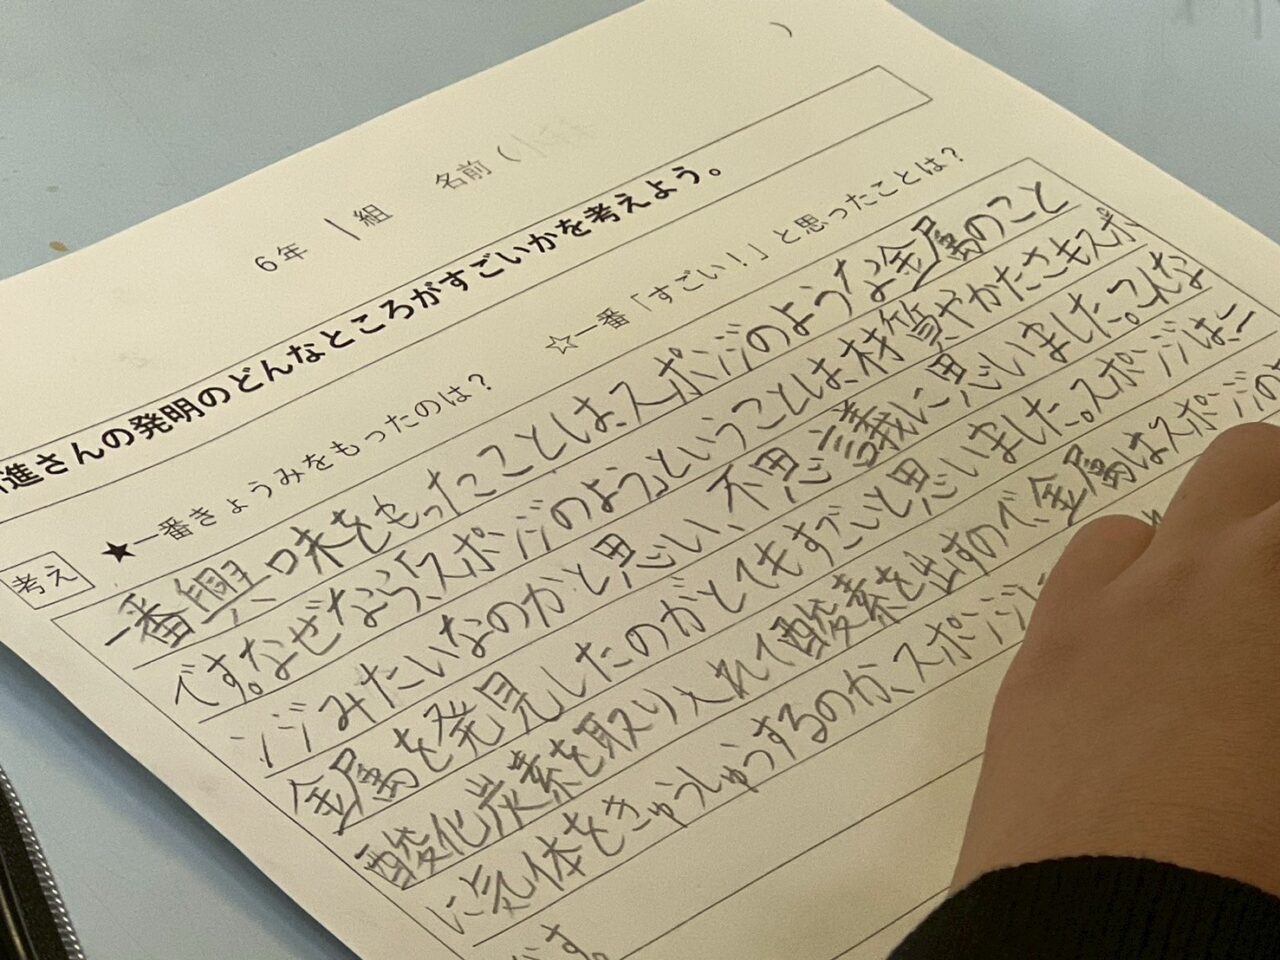 6年 1組 名前( )
進さんの発明のどんなところがすごいかを考えよう。
★一番きょうみをもったのは? ☆一番「すごい!」と思ったことは?
考え
一番興味をもったことは、スポンジのような金属のこと
です。なぜなら、「スポンジのよう」ということは、材質やかたさもスポ
ンジみたいなのかと思い、不思議に思いました。こんな
金属を発見したのがとてもすごいと思いました。スポンジは二
酸化炭素を取り入れて酸素を出すので、金属はスポンジの
に気体をきゅうしゅうするのか、スポンジ
です。